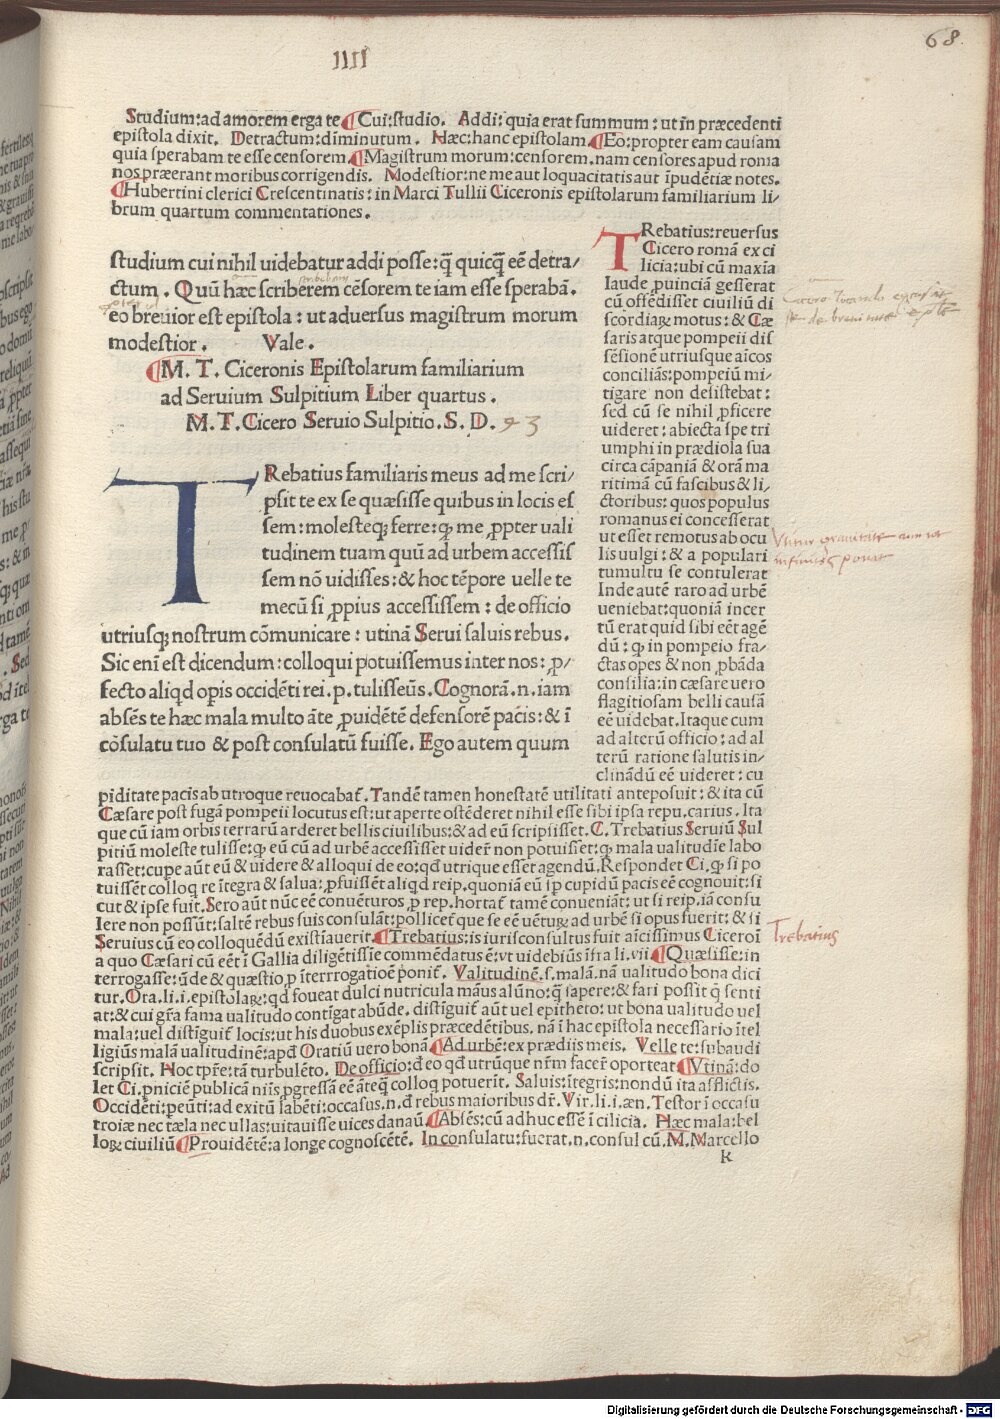 IIII
68.
Studium:ad amorem erga te ¶Cui:studio. Addi:quia erat summum:ut in præcedenti
epistola dixit. Detractum:diminutum. Hæc:hanc epistolam ¶Eo:propter eam causam
quia sperabam te esse censorem ¶Magistrum morum:censorem.nam censores apud roma
nos præerant moribus corrigendis. Modestior:ne me aut loquacitatis aut ĩpudẽtiæ notes.
¶Hubertini clerici Crescentinatis:in Marci Tullii Ciceronis epistolarum familiarium li-
brum quartum commentationes.
studium cui nihil uidebatur addi posse:q̃ quicq̃ eẽ detra/
ctum. Quũ hæc scriberem cẽsorem te iam esse sperabã.
eo breuior est epistola:ut aduersus magistrum morum
modestior. Vale.
¶M. T. Ciceronis Epistolarum familiarium
ad Seruium Sulpitium Liber quartus.
M.T.Cicero Seruio Sulpitio.S.D. 93
TRebatius familiaris meus ad me scri-
psit te ex se quæsisse quibus in locis es
sem:molesteqꝫ ferre:ꝙ me ꝓpter uali
tudinem tuam quũ ad urbem accessis
sem nõ uidisses:& hoc tẽpore uelle te
mecũ si ꝓpius accessissem:de officio
utriusqꝫ nostrum cõmunicare:utinã Serui saluis rebus.
Sic enĩ est dicendum:colloqui potuissemus inter nos:ꝓ/
fecto aliqd opis occidẽti rei.p.tulisseũs.Cognorã.n.iam
absẽs te hæc mala multo ãte ꝓuidẽtẽ defensorẽ pacis:& ĩ
cõsulatu tuo & post consulatũ fuisse. Ego autem quum
TRebatius:reuersus
Cicero romã ex ci
licia:ubi cũ maxĩa
laude ꝓuinciã gesserat
cũ offẽdisset ciuiliũ di
scordiaꝝ motus:& Cæ
saris atque pompeii dis
sẽsionẽ utriusque aĩcos
conciliãs:pompeiũ mi/
tigare non desistebat:
sed cũ se nihil ꝓficere
uideret:abiecta spe tri
umphi in prædiola sua
circa cãpaniã & orã ma
ritimã cũ fascibus & li/
ctoribus:quos populus
romanus ei concesserat
ut esset remotus ab ocu
lis uulgi:& a populari
tumultu se contulerat
Inde autẽ raro ad urbẽ
ueniebat:quoniã incer
tũ erat quid sibi eẽt agẽ
dũ:ꝙ in pompeio fra/
ctas opes & non ꝓbãda
consilia:in cæsare uero
flagitiosam belli causã
eẽ uidebat.Itaque cum
ad alterũ officio:ad al
terũ ratione salutis in/
clinãdũ eẽ uideret:cu
piditate pacis ab utroque reuocabat̃.Tandẽ tamen honestatẽ utilitati anteposuit:& ita cũ
Cæsare post fugã pompeii locutus est:ut aperte ostẽderet nihil esse sibi ipsa repu.carius.Ita
que cũ iam orbis terrarũ arderet bellis ciuilibus:& ad eũ scripsisset.C.Trebatius Seruiũ Sul
pitiũ moleste tulisse:ꝙ eũ cũ ad urbẽ accessisset uider̃ non potuisset:ꝙ mala ualitudĩe labo
rasset:cupe aũt eũ & uidere & alloqui de eo:qđ utrique esset agendũ.Respondet Ci.ꝙ si po
tuissẽt colloq re ĩtegra & salua:ꝓfuissẽt aliqd reip.quoniã eũ ip cupidũ pacis eẽ cognouit:si
cut & ipse fuit.Sero aũt nũc eẽ conuẽturos ꝓ rep.hortat̃ tamẽ conueniãt:ut si reip.iã consu
lere non possũt:saltẽ rebus suis consulãt:pollicet̃ que se eẽ uẽtuꝝ ad urbẽ si opus fuerit:& si
Seruius cũ eo colloquẽdũ existĩauerit.¶Trebatius:is iurisconsultus fuit aĩcissimus Ciceroĩ
a quo Cæsari cũ eẽt ĩ Gallia diligẽtissĩe commẽdatus ẽ:ut uidebiũs ĩfra li.vii.¶Quæsisse:in
terrogasse:ũde & quæstio ꝓ ĩterrrogatioẽ ponit̃. Valitudinẽ.s.malã.nã ualitudo bona dici
tur.Ora.li.i.epistolaꝝ:qđ foueat dulci nutricula mãus alũno:q̃ sapere:& fari possit q̃ senti
at:& cui gr̃a fama ualitudo contĩgat abũde.distiguit̃ aũt uel epitheto:ut bona ualitudo uel
mala:uel distĩguit̃ locis:ut his duobus exẽplis præcedẽtibus.nã ĩ hac epistola necessario ĩtel
ligiũs malã ualitudinẽ:apđ Oratiũ uero bonã ¶Ad urbẽ:ex prædiis meis. Velle te:subaudi
scripsit. Hoc tp̃re:tã turbulẽto. De officio:đ eo qđ utrũque nr̃m facer̃ oporteat ¶Vtinã:do
let Ci.ꝑniciẽ publicã niĩs ꝓgressã eẽ ãteq̃ colloq potuerit. Saluis:ĩtegris:nondũ ita afflictis.
Occidẽti:peũti:ad exitũ labẽti:occasus.n.đ rebus maioribus dr̃.Vir.li.i.æn.Testor ĩ occasu
troiæ nec tæla nec ullas:uitauisse uices danaũ.¶Absẽs:cũ adhuc essẽ ĩ cilicia. Hæc mala:bel
loꝝ ciuiliũ ¶Prouidẽtẽ:a longe cognoscẽtẽ. In consulatu:fuerat.n.consul cũ.M.Marcello
k
Trebatius
Digitalisierung gefördert durch die Deutsche Forschungsgemeinschaft - DFG